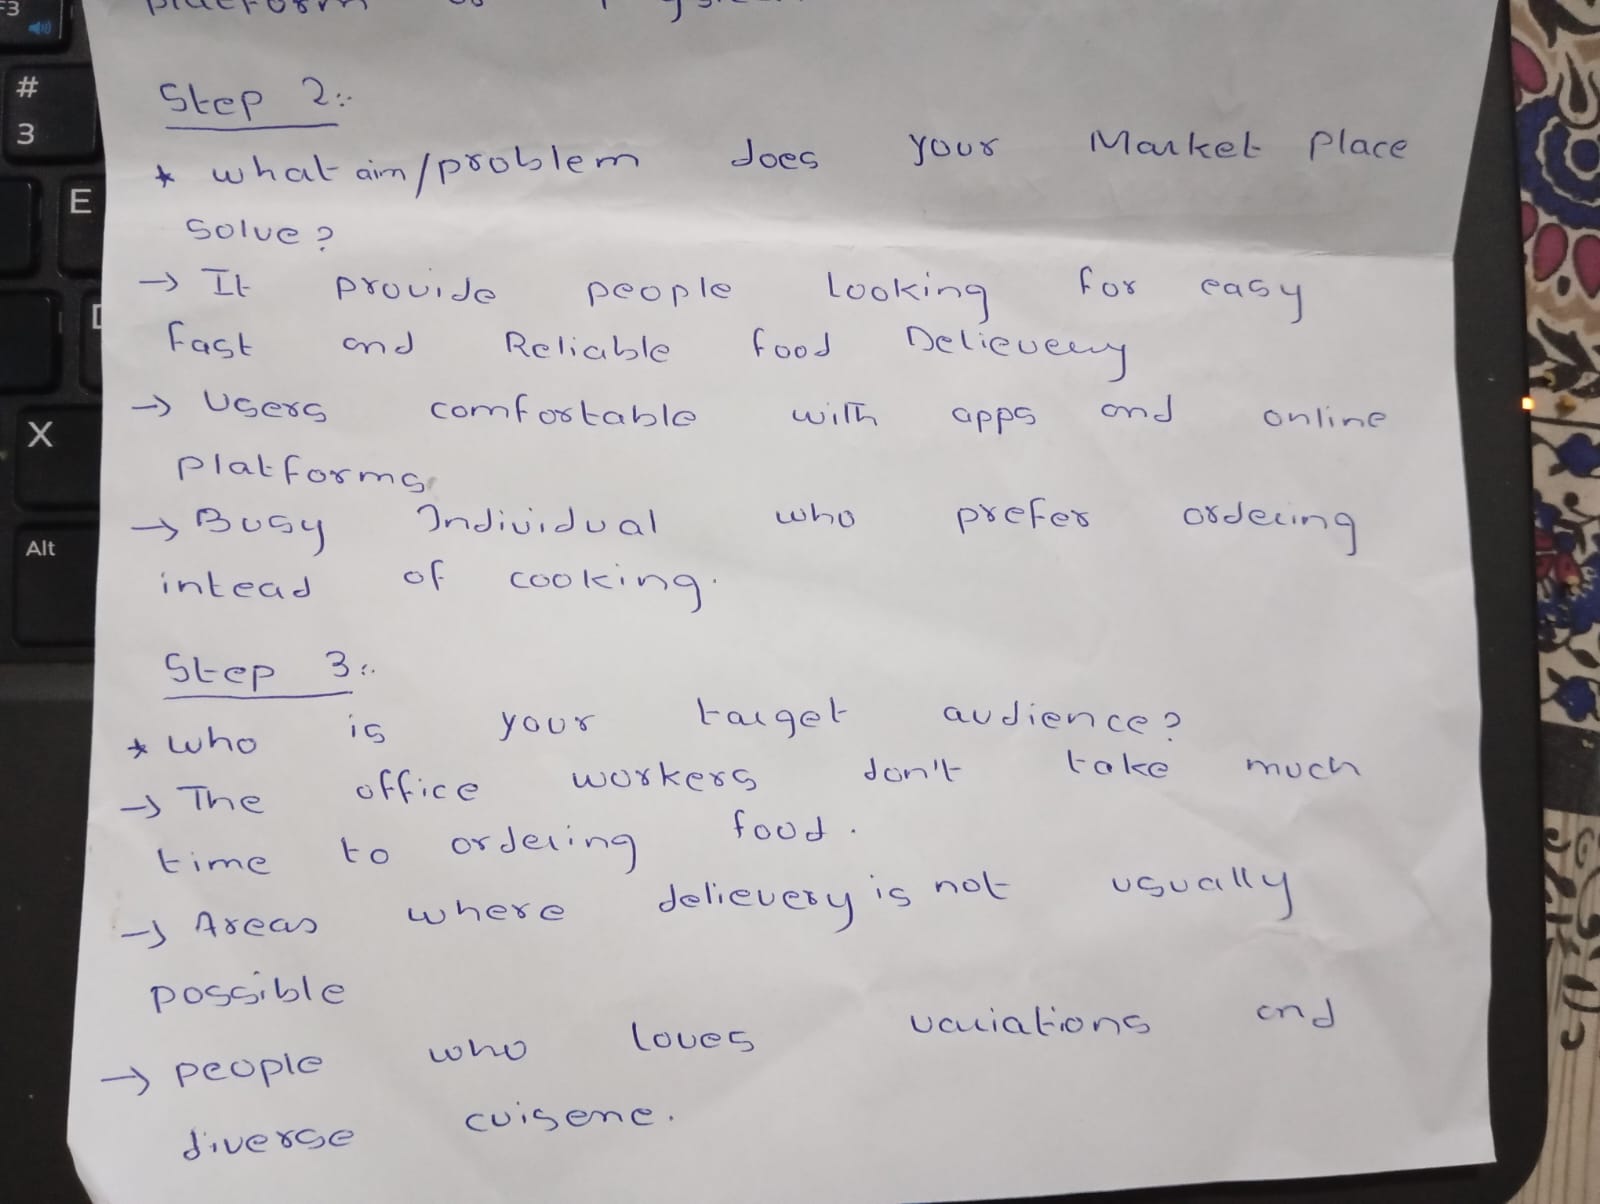 Step 2:-
* what aim/problem does your Market Place
solve?
→ It provide people looking for easy
fast and Reliable food Delievery
→ Users comfortable with apps and online
platforms
→ Busy Individual who prefer ordering
intead of cooking.
Step 3:-
* who is your target audience?
→ The office workers don't take much
time to ordering food.
→ Areas where delievery is not usually
possible
→ people who loves variations and
diverse cuisene.
F3
#
3
E
X
Alt